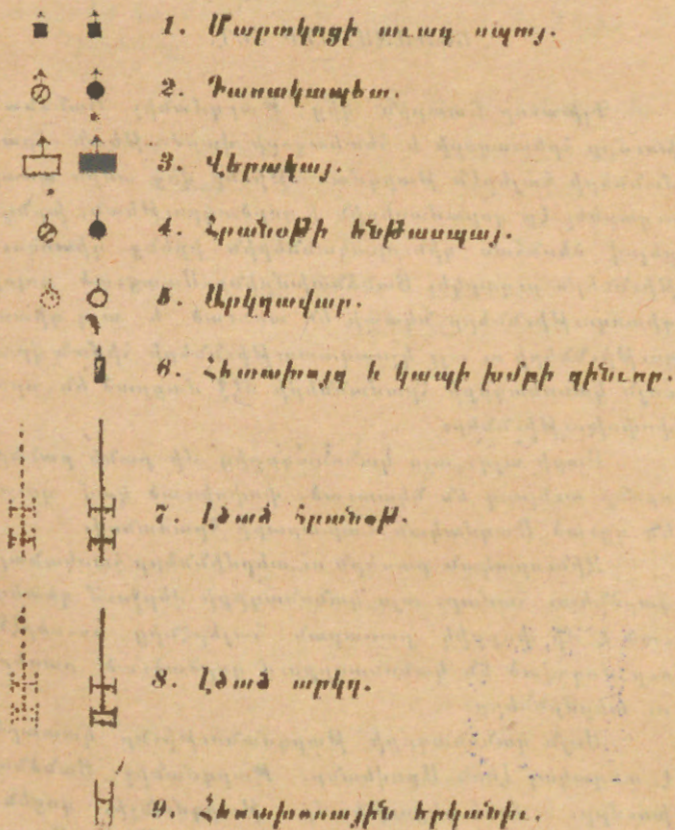 1. Մարտկոցի աւագ սպայ.
2. Դասակապետ.
3. Վերակայ.
4. Հրանօթի ենթասպայ.
5. Արկղավար.
6. Հետախոյզ և կապի խմբի զինւոր.
7. Լծած հրանօթ.
8. Լծած արկղ.
9. Հեռախօսային երկանիւ.